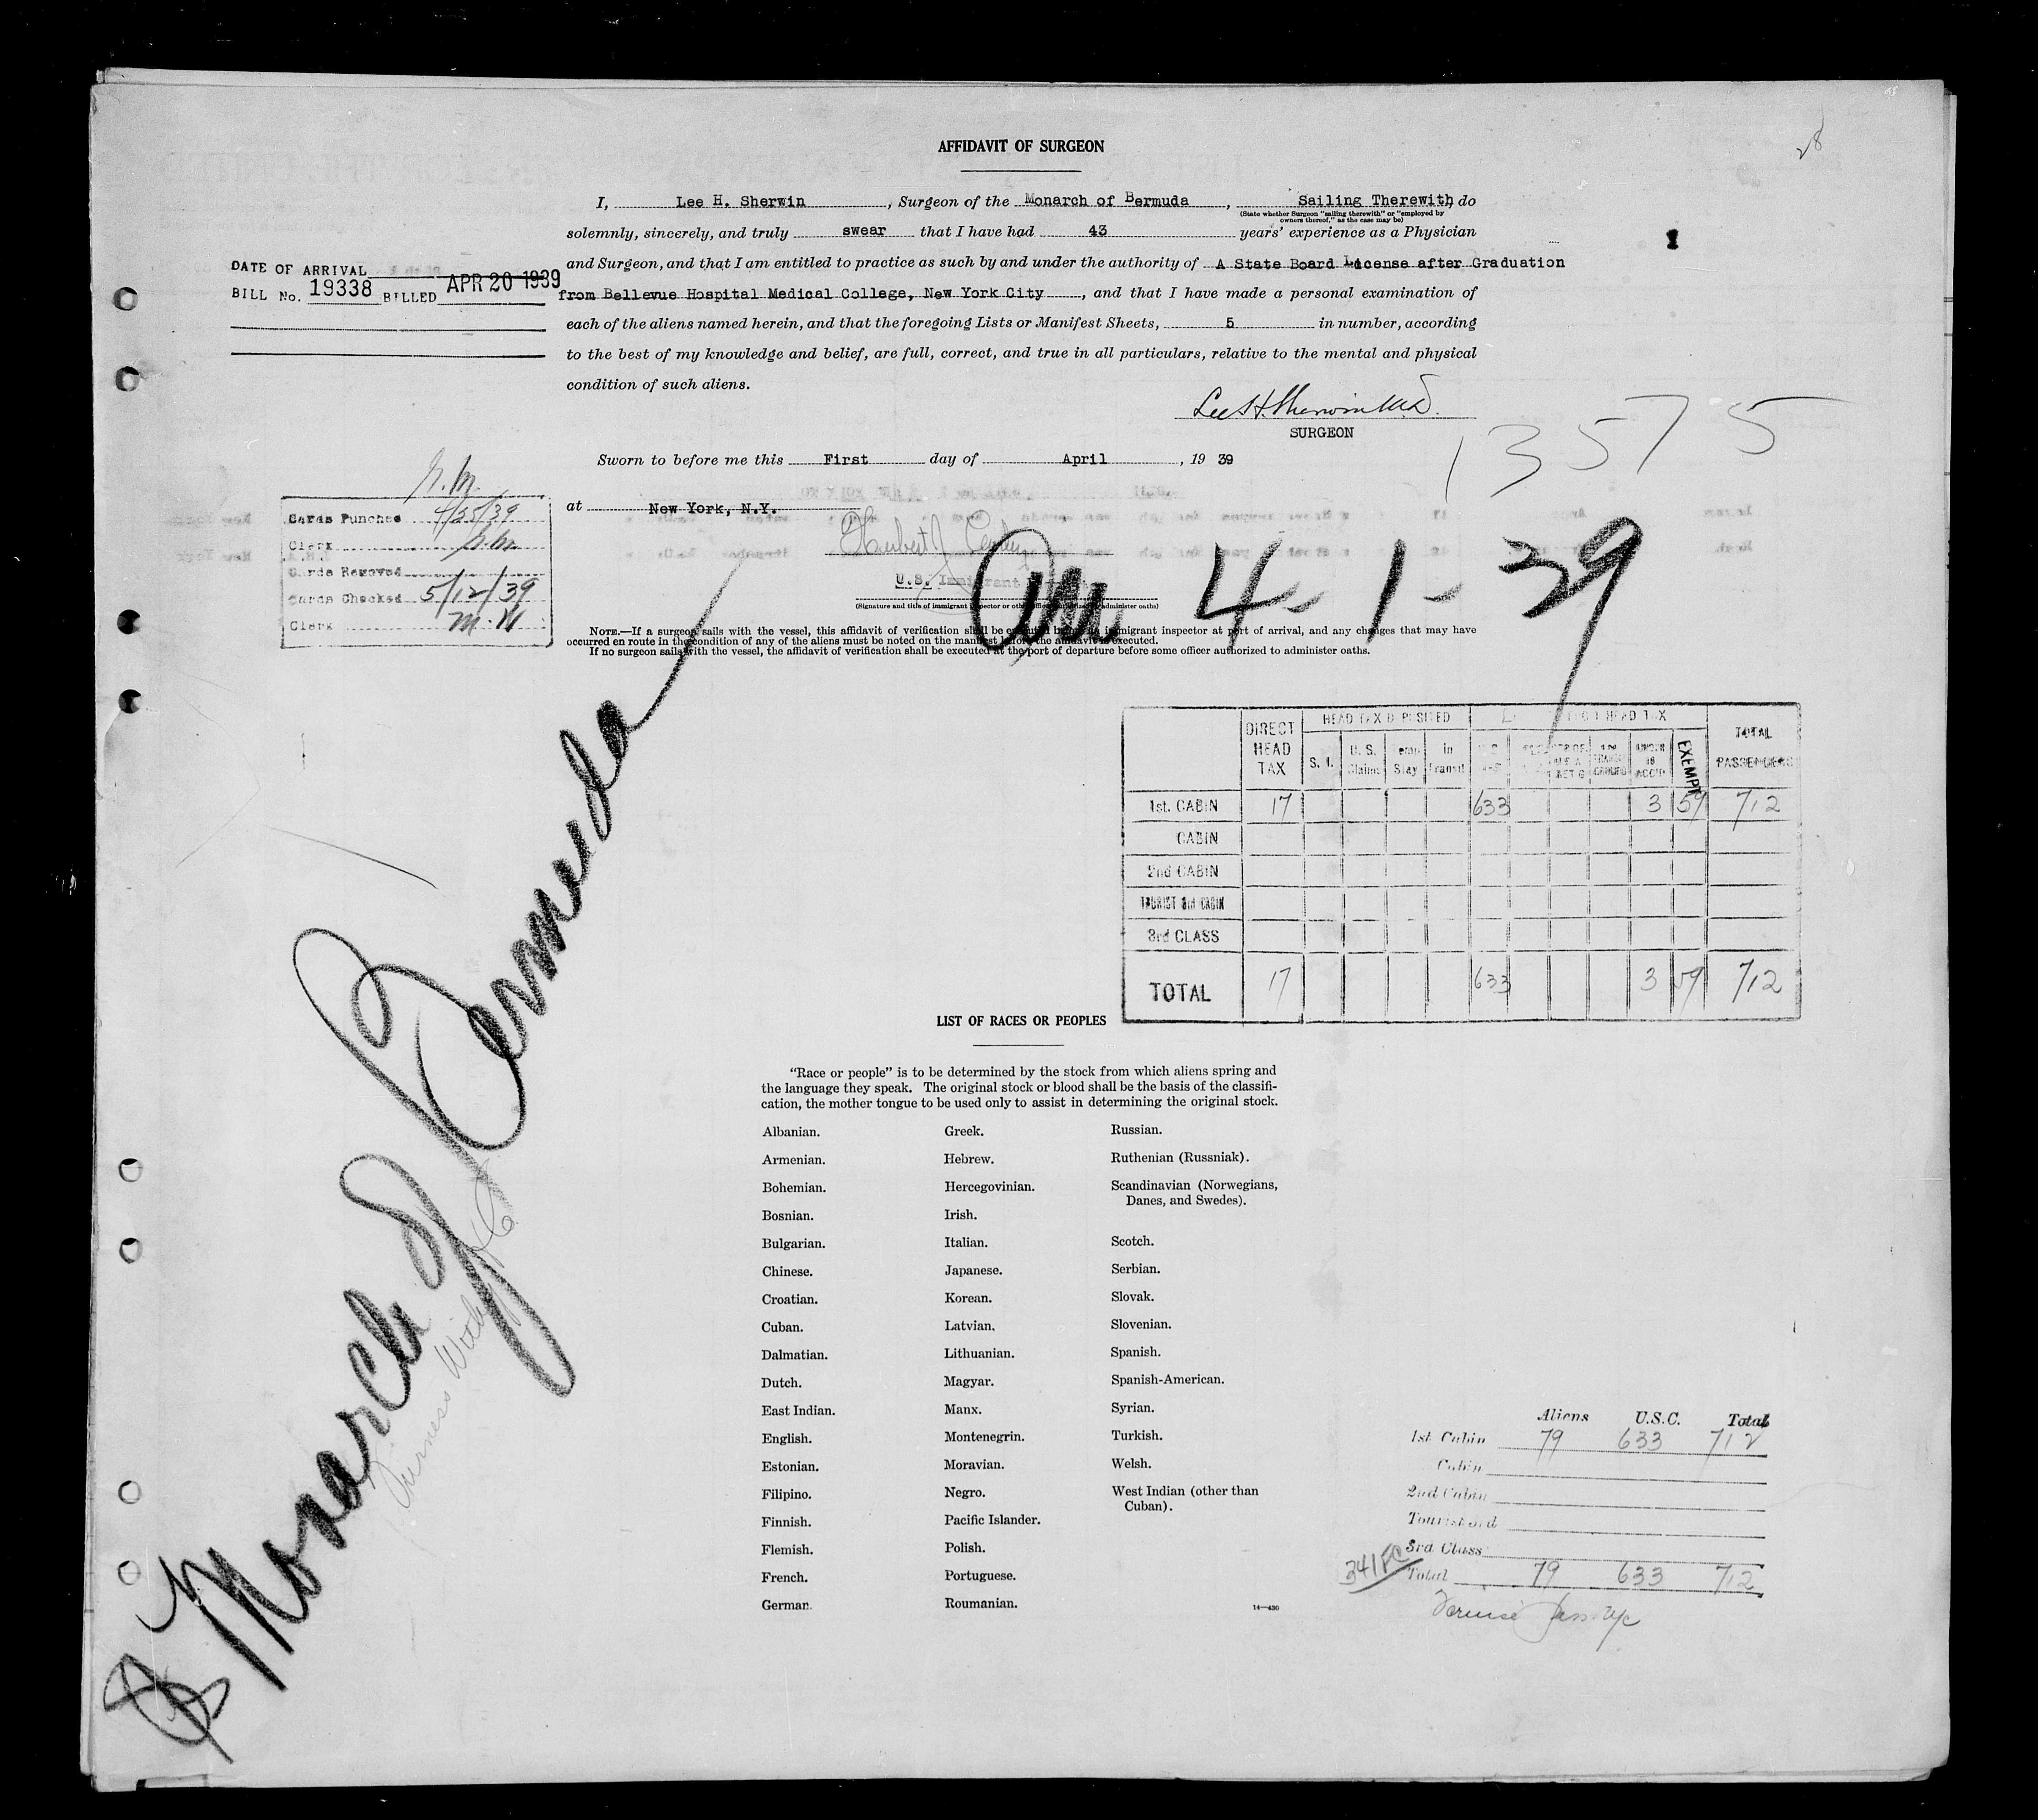 28
AFFIDAVIT OF SURGEON
I, Lee H. Sherwin , Surgeon of the Monarch of Bermuda , Sailing Therewith, do
(State whether Surgeon "sailing therewith" or "employed by
owners thereof," as the case may be)
solemnly, sincerely, and truly swear that I have had 43 years' experience as a Physician
1
and Surgeon, and that I am entitled to practice as such by and under the authority of A State Board License after Graduation
from Bellevue Hospital Medical College, New York City , and that I have made a personal examination of
each of the aliens named herein, and that the foregoing Lists or Manifest Sheets, 5 in number, according
to the best of my knowledge and belief, are full, correct, and true in all particulars, relative to the mental and physical
condition of such aliens.
DATE OF ARRIVAL
BILL No. 19338 BILLED APR 20 1939
Lee H. Sherwin M.D.
SURGEON
13575
Sworn to before me this First day of April , 19 39
at New York, N.Y.
Cards Punched 4/25/39
Clerk
Cards Removed
Cards Checked 5/12/39
Clerk M.K
Herbert J.
U.S. Immigrant
(Signature and title of immigrant inspector or other officer authorized to administer oaths)
4-1-39
NOTE.—If a surgeon sails with the vessel, this affidavit of verification shall be executed before an immigrant inspector at port of arrival, and any changes that may have
occurred en route in the condition of any of the aliens must be noted on the manifest before the affidavit is executed.
If no surgeon sails with the vessel, the affidavit of verification shall be executed at the port of departure before some officer authorized to administer oaths.
Monarch of Bermuda
Furness Withy
DIRECT HEAD TAX
HEAD TAX DEPOSITED
HEAD TAX
TOTAL PASSENGERS
S. I. U. S. Claims Temp Stay in Transit UNDER 16 ACC'P EXEMPT
1st. CABIN 17 633 3 59 712
CABIN
2nd CABIN
TOURIST 3rd CABIN
3rd CLASS
TOTAL 17 633 3 59 712
LIST OF RACES OR PEOPLES
"Race or people" is to be determined by the stock from which aliens spring and
the language they speak. The original stock or blood shall be the basis of the classifi-
cation, the mother tongue to be used only to assist in determining the original stock.
Albanian.
Armenian.
Bohemian.
Bosnian.
Bulgarian.
Chinese.
Croatian.
Cuban.
Dalmatian.
Dutch.
East Indian.
English.
Estonian.
Filipino.
Finnish.
Flemish.
French.
German.
Greek.
Hebrew.
Hercegovinian.
Irish.
Italian.
Japanese.
Korean.
Latvian.
Lithuanian.
Magyar.
Manx.
Montenegrin.
Moravian.
Negro.
Pacific Islander.
Polish.
Portuguese.
Roumanian.
Russian.
Ruthenian (Russniak).
Scandinavian (Norwegians,
Danes, and Swedes).
Scotch.
Serbian.
Slovak.
Slovenian.
Spanish.
Spanish-American.
Syrian.
Turkish.
Welsh.
West Indian (other than
Cuban).
14—430
Aliens U.S.C. Total
1st Cabin 79 633 712
Cabin
2nd Cabin
Tourist 3rd
3rd Class
Total 79 633 712